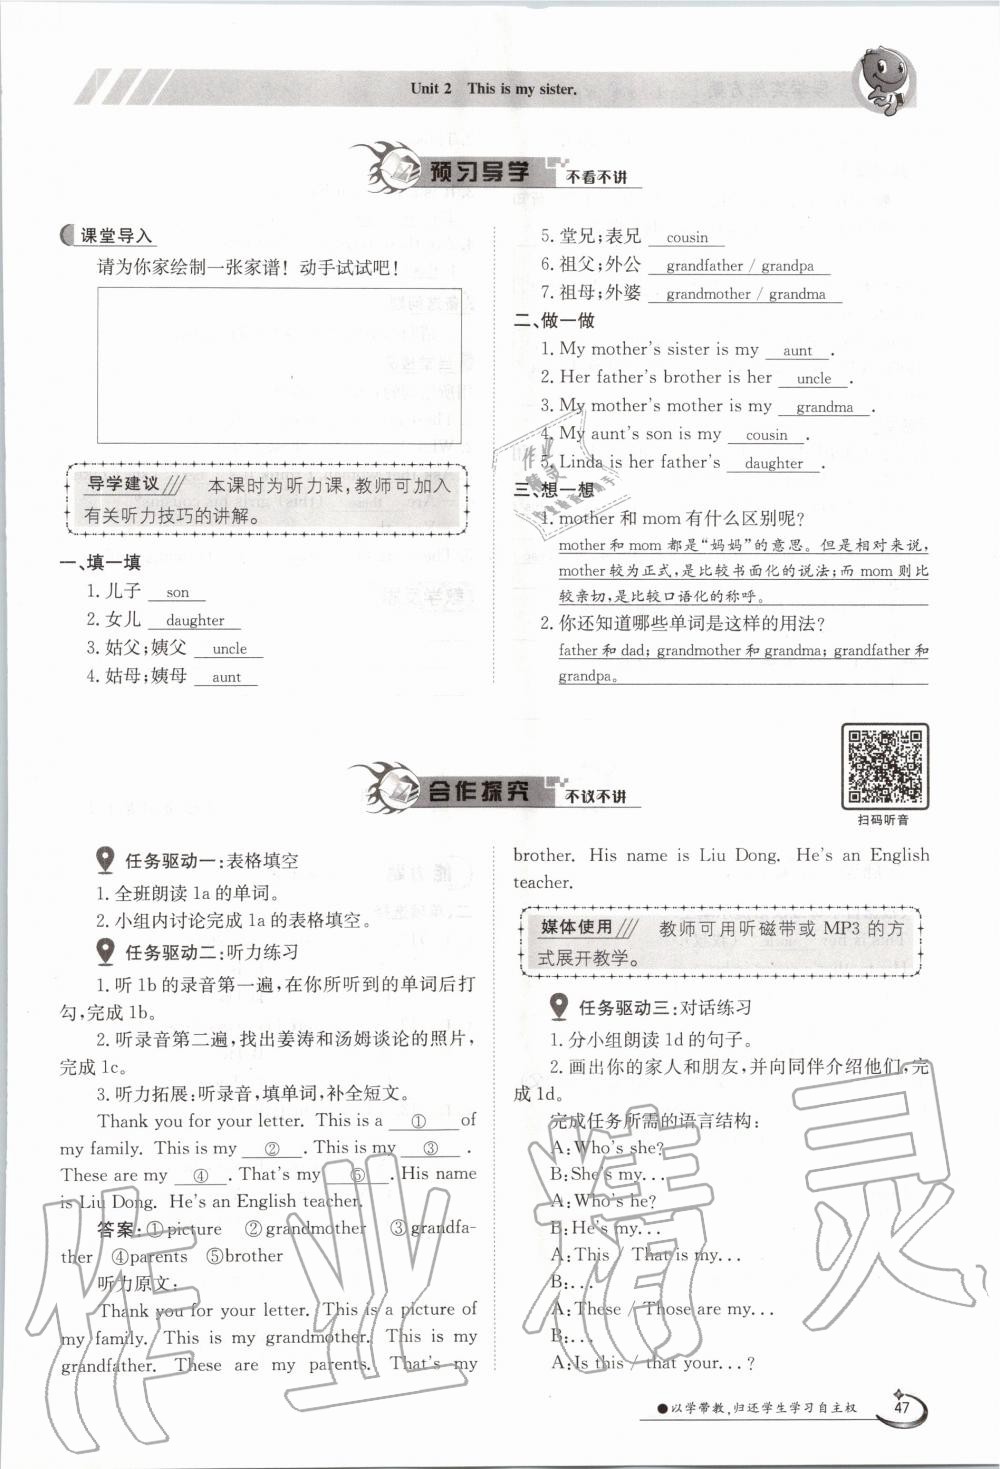 Unit 2 This is my sister.
预习导学 不看不讲
课堂导入
请为你家绘制一张家谱！动手试试吧！
导学建议 本课时为听力课，教师可加入
有关听力技巧的讲解。
一、填一填
1. 儿子 son
2. 女儿 daughter
3. 姑父；姨父 uncle
4. 姑母；姨母 aunt
5. 堂兄；表兄 cousin
6. 祖父；外公 grandfather / grandpa
7. 祖母；外婆 grandmother / grandma
二、做一做
1. My mother's sister is my aunt .
2. Her father's brother is her uncle .
3. My mother's mother is my grandma .
4. My aunt's son is my cousin .
5. Linda is her father's daughter .
三、想一想
1. mother 和 mom 有什么区别呢？
mother 和 mom 都是“妈妈”的意思。但是相对来说，
mother 较为正式，是比较书面化的说法；而 mom 则比
较亲切，是比较口语化的称呼。
2. 你还知道哪些单词是这样的用法？
father 和 dad；grandmother 和 grandma；grandfather 和
grandpa。
扫码听音
合作探究 不议不讲
任务驱动一：表格填空
1. 全班朗读 1a 的单词。
2. 小组内讨论完成 1a 的表格填空。
任务驱动二：听力练习
1. 听 1b 的录音第一遍，在你所听到的单词后打
勾，完成 1b。
2. 听录音第二遍，找出姜涛和汤姆谈论的照片，
完成 1c。
3. 听力拓展：听录音，填单词，补全短文。
Thank you for your letter. This is a ① of
my family. This is my ② . This is my ③ .
These are my ④ . That's my ⑤ . His name
is Liu Dong. He's an English teacher.
答案：①picture ②grandmother ③grandfa-
ther ④parents ⑤brother
听力原文：
Thank you for your letter. This is a picture of
my family. This is my grandmother. This is my
grandfather. These are my parents. That's my
brother. His name is Liu Dong. He's an English
teacher.
媒体使用 教师可用听磁带或 MP3 的方
式展开教学。
任务驱动三：对话练习
1. 分小组朗读 1d 的句子。
2. 画出你的家人和朋友，并向同伴介绍他们，完
成 1d。
完成任务所需的语言结构：
A：Who's she?
B：She's my...
A：Who's he?
B：He's my...
A：This / That is my...
B：...
A：These / Those are my...
B：...
A：Is this / that your...?
●以学带教，归还学生学习自主权 47
作业精灵
作业精灵